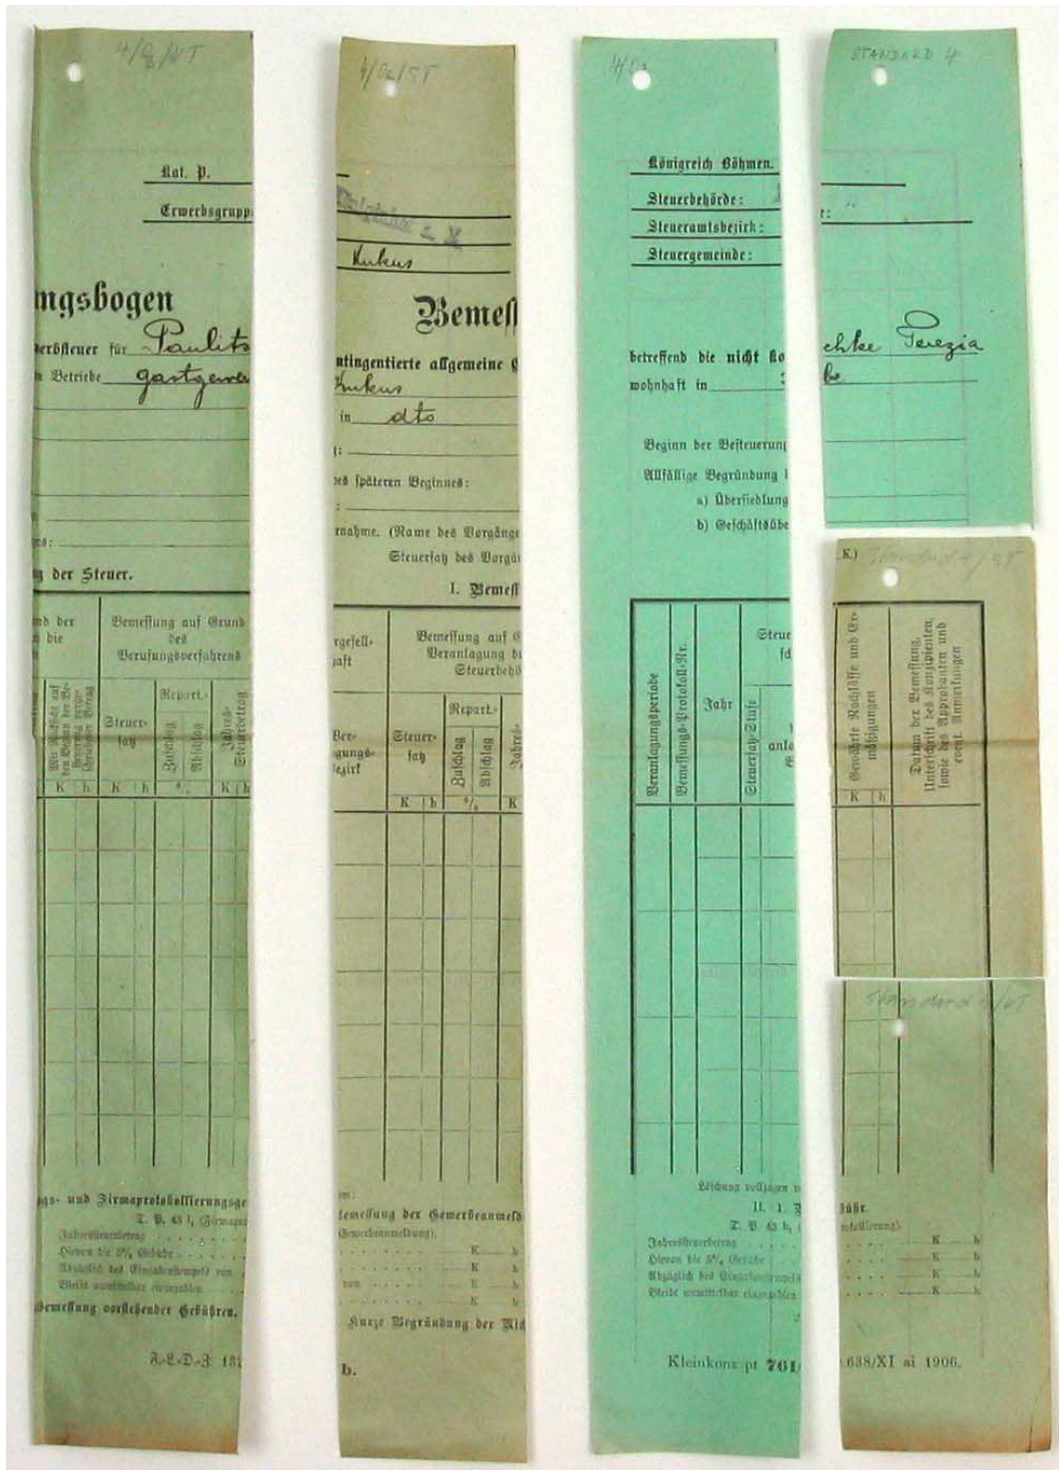 Kat. P.
Erwerbsgruppe
ngsbogen
erbsteuer für Paulits
n Betriebe gastgewer
ns:
g der Steuer.
nd der
n die
Bemessung auf Grund
des
Berufungsverfahrens
Steuer-
satz
Repart.-
Zuschlag
Abschlag
Jahres-
Steuerbetrag
K h K h % K h
gs- und Firmaprotokollierungsge
T. P. 43 l, (Firmapr
Jahressteuerbetrag
Hievon die 5% Gebühr
Abzüglich des Eingabenstempels von
Bleibt unmittelbar einzuzahlen
Bemessung vorstehender Gebühren.
F.-L.-D.-Z. 13
Kukus
Bemess
ntingentierte allgemeine E
Kukus
in dto
g:
des späteren Beginnes:
:
rnahme. (Name des Vorgänge
Steuersatz des Vorgä
I. Bemess
rgesell-
haft
Bemessung auf G
Veranlagung d
Steuerbehö
Ver-
gungs-
bezirk
Steuer-
satz
Repart.-
Zuschlag
Abschlag
Jahres-
K h % K
Bemessung der Gewerbeanmeld
(Gewerbeanmeldung).
K h
K h
von K h
K h
Kurze Begründung der Nich
b.
Königreich Böhmen.
Steuerbehörde:
Steueramtsbezirk:
Steuergemeinde:
betreffend die nicht ko
wohnhaft in
Beginn der Besteuerung
Allfällige Begründung d
a) Übersiedlung
b) Geschäftsübe
Veranlagungsperiode
Bemessungs-Protokoll-Nr.
Jahr
Steuersatz-Stufe
Steue
Löschung vollzogen
T. P. 43 h,
Jahressteuerbetrag
Hievon die 5% Gebühr
Abzüglich des Eingabenstempels
Bleibt unmittelbar einzuzahlen
Kleinkonz pt 761/
STANDARD 4
e:
chke Terezia
be
K.) Standard 4/ST
Gewährte Nachlässe und Er-
mäßigungen
Datum der Bemessung,
Unterschrift des Konzipienten,
sowie des Approbanten und
event. Anmerkungen
K h
Standard
bühr.
otokollierung).
K h
K h
K h
K h
638/XI ai 1906.